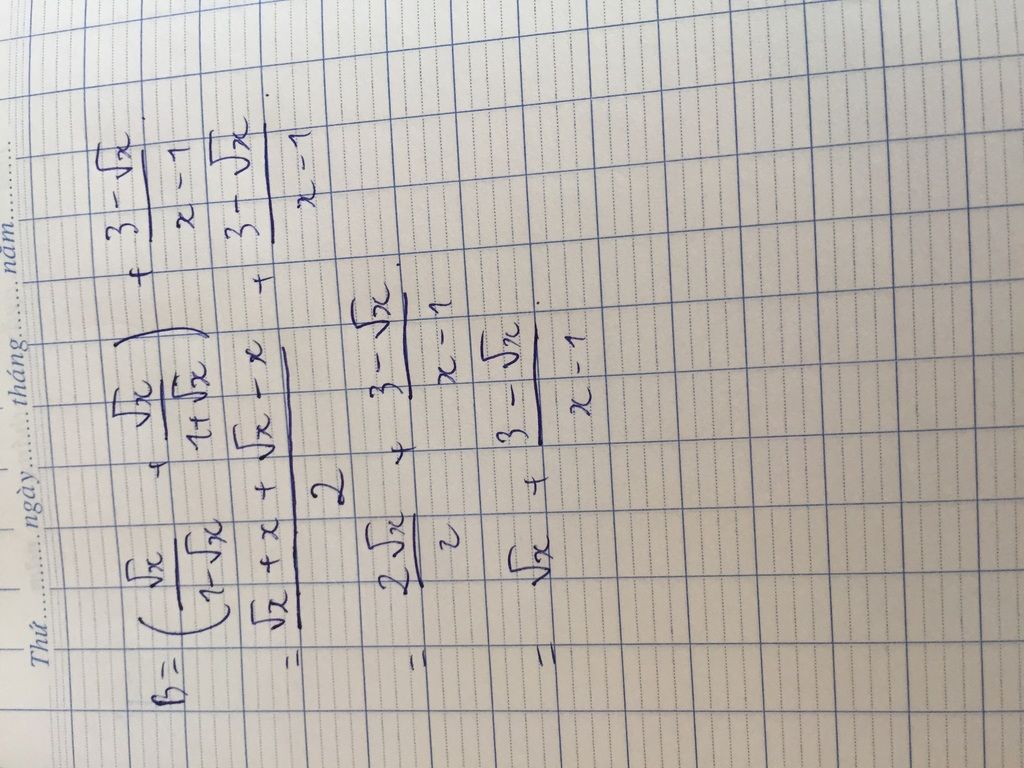 Thứ............ngày............tháng............năm............
B = (√x/(1-√x) + √x/(1+√x)) + (3-√x)/(x-1)
= (√x + x + √x - x)/2 + (3-√x)/(x-1)
= 2√x/2 + (3-√x)/(x-1)
= √x + (3-√x)/(x-1)